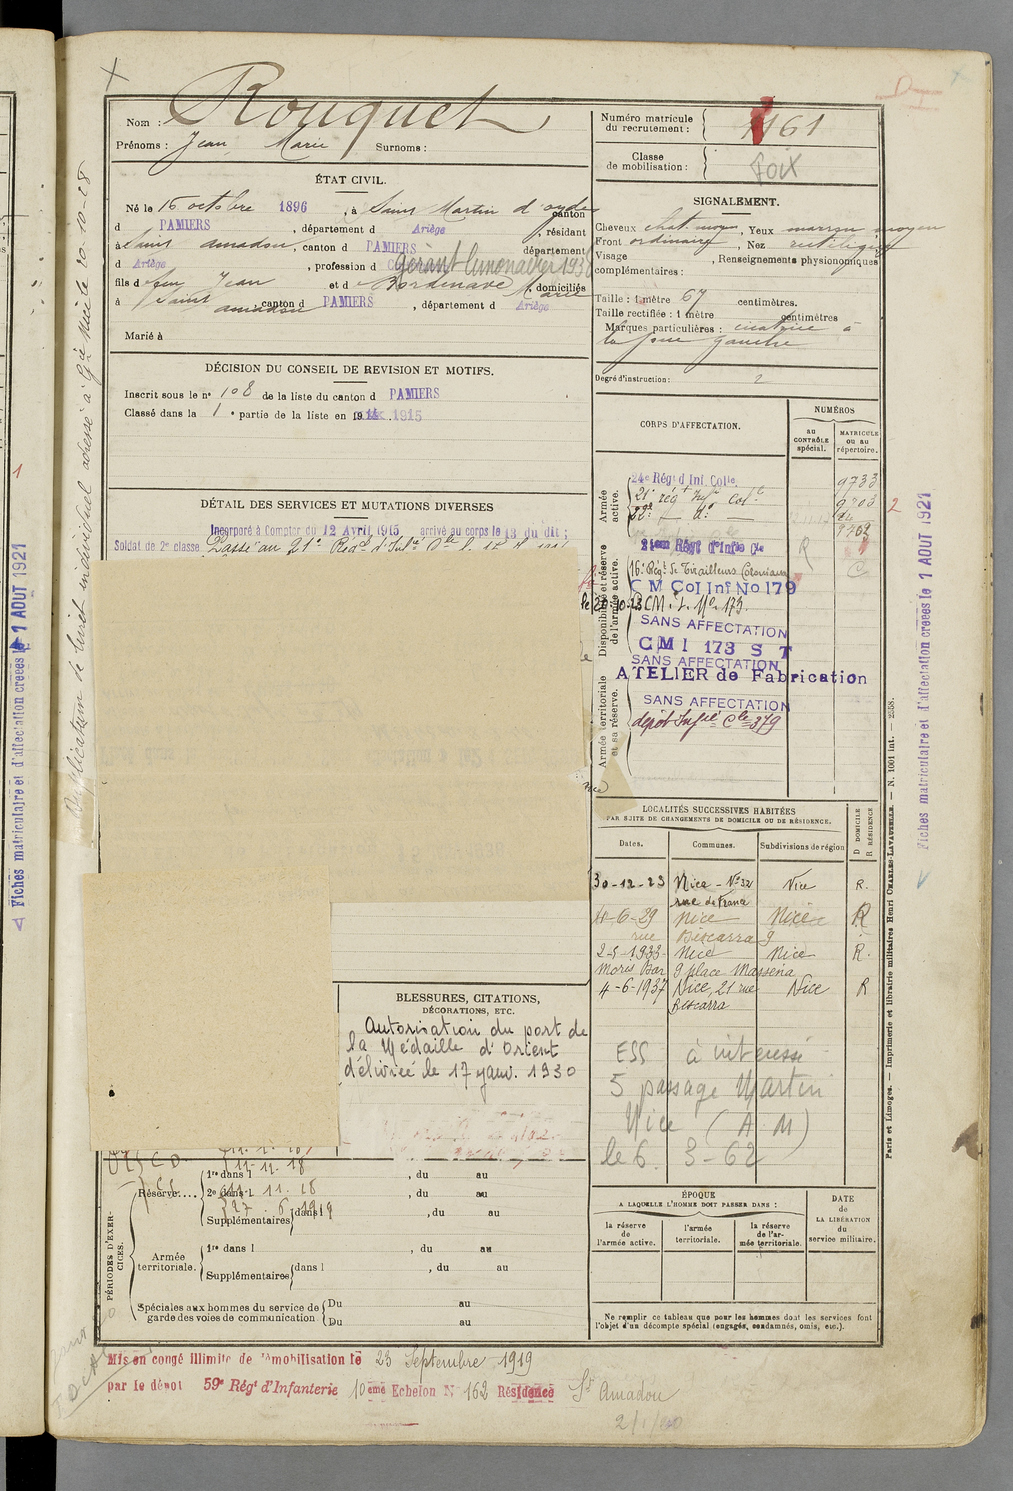 Nom : Rouquet
Prénoms : Jean Marie Surnoms :
ÉTAT CIVIL.
Né le 16 octobre 1896, à Saint Martin d'oydes canton
d PAMIERS, département d Ariège, résidant
à Saint amadou, canton d PAMIERS département
d Ariège, profession d gérant limonadier 193
fils d Jean et d Bordenave Marie, domiciliés
à Saint amadou canton d PAMIERS, département d Ariège
Marié à
DÉCISION DU CONSEIL DE REVISION ET MOTIFS.
Inscrit sous le n° 108 de la liste du canton d PAMIERS
Classé dans la 1e partie de la liste en 1915
DÉTAIL DES SERVICES ET MUTATIONS DIVERSES
Incorporé à Compter du 12 Avril 1915 arrivé au corps le 13 du dit ;
Soldat de 2e classe Passé au 21e
BLESSURES, CITATIONS,
DÉCORATIONS, ETC.
Autorisation du port de
la Médaille d'Orient
délivrée le 17 janv. 1930
PÉRIODES D'EXERCICES.
Réserve....
1re dans l , du au
11.11.18
2e dans l 11.18 , du au
Supplémentaires dans l , du au
27.6.1919
Armée territoriale.
1re dans l , du au
Supplémentaires dans l , du au
Spéciales aux hommes du service de garde des voies de communication
Du au
Du au
Mis en congé illimité de démobilisation le 23 Septembre 1919
par le dépôt 59e Régt d'Infanterie 10ème Echelon N° 162 Résidence St Amadou
2/1/20
Numéro matricule
du recrutement : 1161
Classe
de mobilisation : FOIX
SIGNALEMENT.
Cheveux chat. moyen, Yeux marron moyen
Front ordinaire, Nez rectiligne
Visage , Renseignements physionomiques
complémentaires :
Taille : 1 mètre 67 centimètres.
Taille rectifiée : 1 mètre centimètres
Marques particulières : cicatrice à
la joue gauche
Degré d'instruction : 2
CORPS D'AFFECTATION.
NUMÉROS
au CONTRÔLE spécial.
MATRICULE ou au répertoire.
Armée active.
24e Régt d'Inf. Colle. 9733
21e régt Infie Colle 9203
22e — do —
9762
Disponibilité et réserve de l'armée active.
21ème Régt d'Infie Cle R
16e Régt de Tirailleurs Coloniaux C
C M Col Inf No 179
le 20.10.28 CM.I. No 173.
SANS AFFECTATION
C M I 173 S T
SANS AFFECTATION
Armée territoriale et sa réserve.
ATELIER de Fabrication
SANS AFFECTATION
dépôt Infie Cle 379
LOCALITÉS SUCCESSIVES HABITÉES
PAR SUITE DE CHANGEMENTS DE DOMICILE OU DE RÉSIDENCE.
Dates. Communes. Subdivisions de région D DOMICILE R RÉSIDENCE
30-12-23 Nice - No 32 Nice R.
rue de France
11-6-29 Nice Nice R
rue Biscarra 9
2-5-1933 Nice Nice R.
Moris Bar 9 place Masséna
4-6-1937 Nice, 21 rue Nice R
Biscarra
ESS à intéressé
5 passage Martin
Nice (A.M)
le 6. 3-62
ÉPOQUE
A LAQUELLE L'HOMME DOIT PASSER DANS :
la réserve de l'armée active.
l'armée territoriale.
la réserve de l'armée territoriale.
DATE de LA LIBÉRATION du service militaire.
Ne remplir ce tableau que pour les hommes dont les services font
l'objet d'un décompte spécial (engagés, condamnés, omis, etc.).
Paris et Limoges. — Imprimerie et librairie militaires Henri CHARLES-LAVAUZELLE. — N. 1001 int. — 2358.
Fiches matriculaire et d'affectation créées le 1 AOUT 1921
Duplicatum de livret individuel adressé à Gie Nice le 10-10-28
Fiches matriculaire et d'affectation créées le 1 AOUT 1921